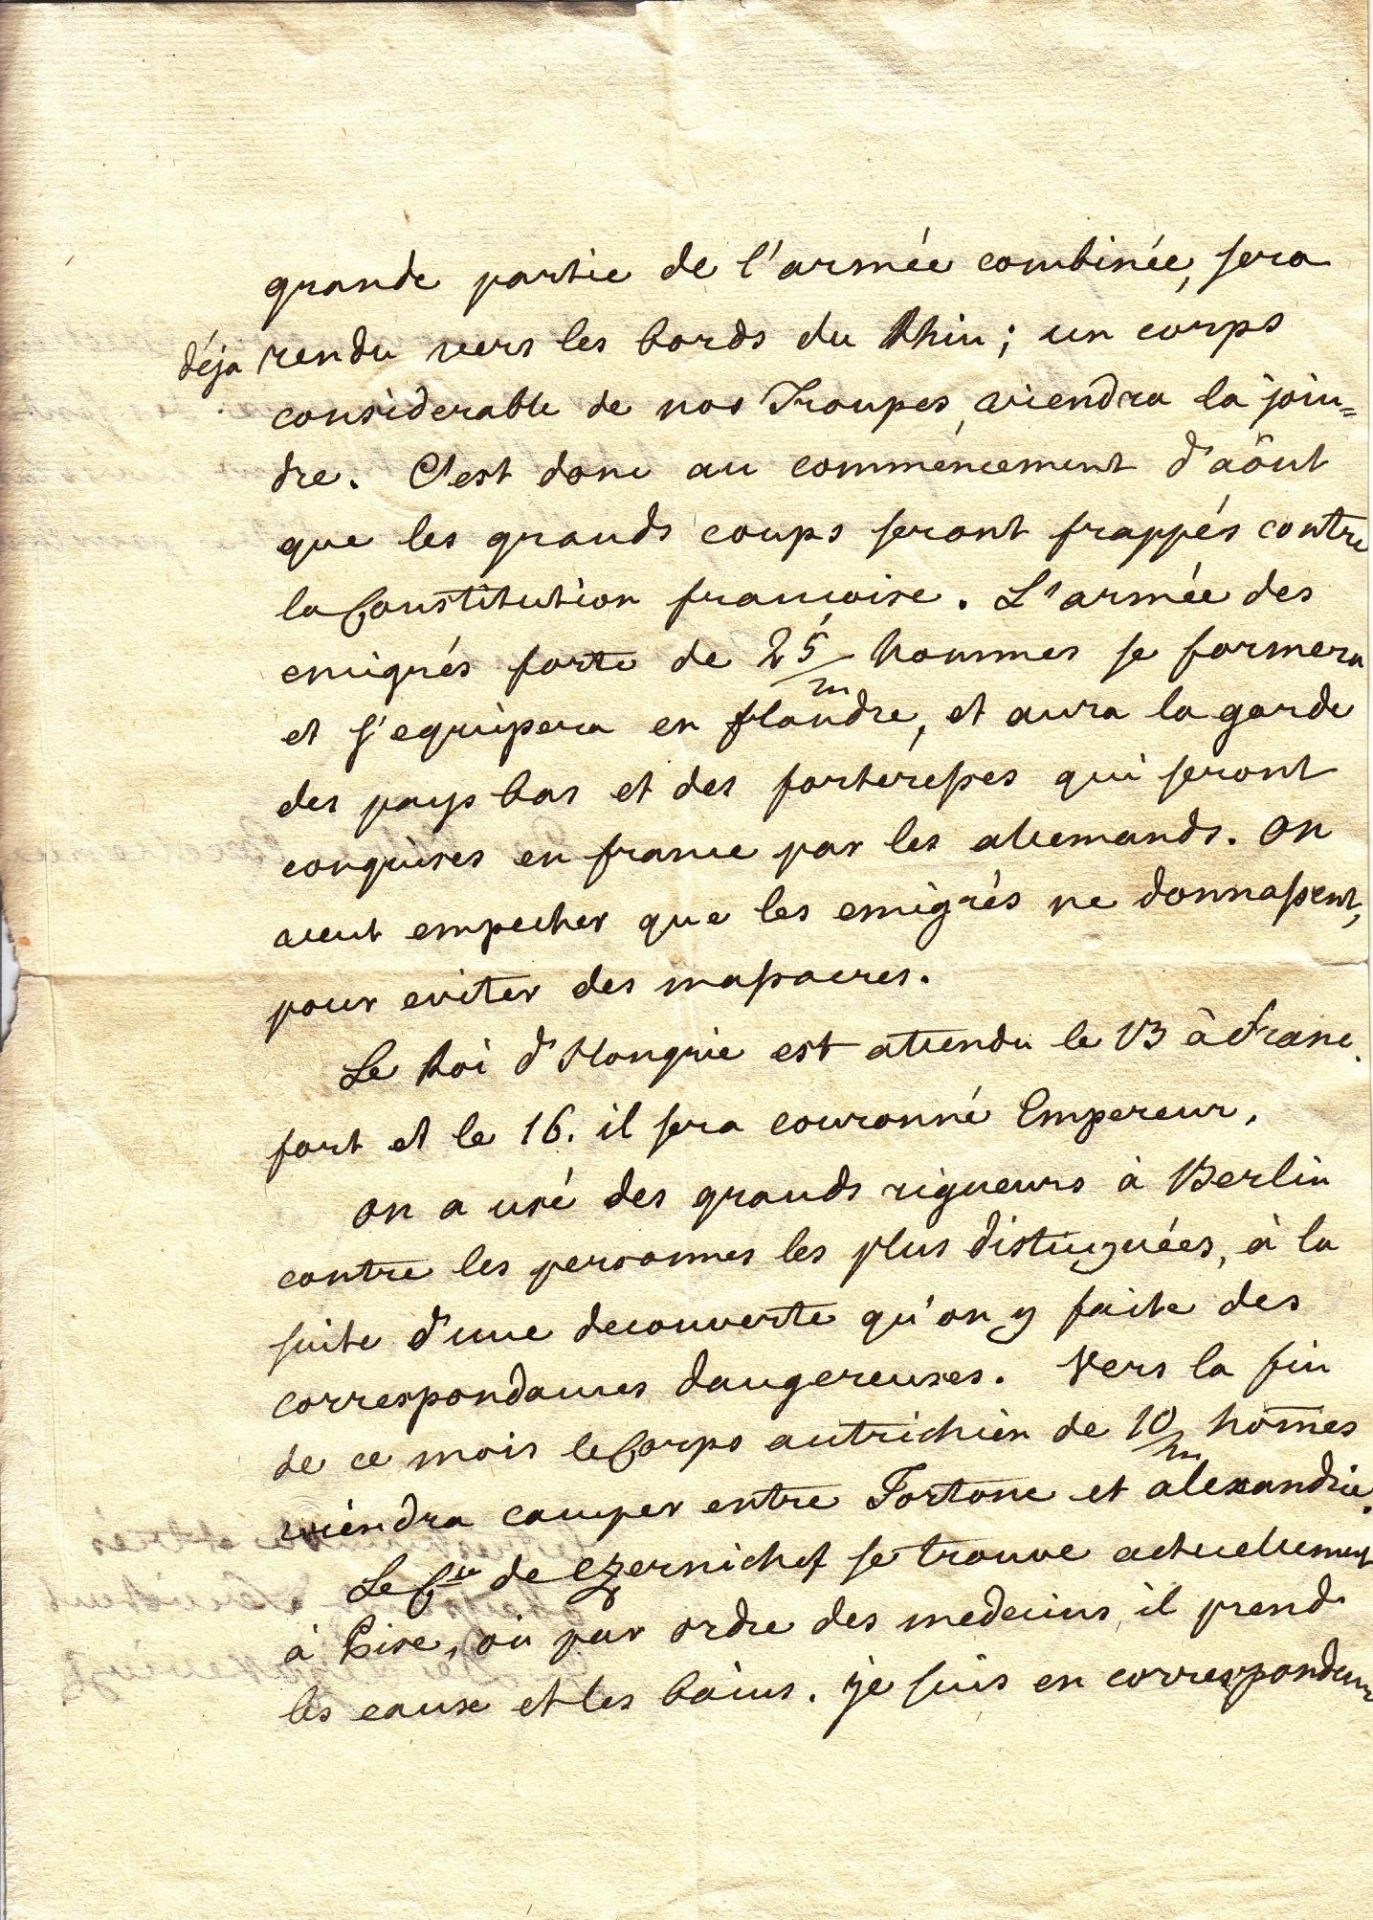 grande partie de l'armée combinée, sera
déja rendu vers les bords du Rhin; un corps
considerable de nos Troupes, viendra la join=
dre. C'est donc au commencement d'aôut
que les grands coups seront frappés contre
la Constitution francoise. L'armée des
emigrés forte de 25/m hommes se formera
et s'equipera en flandre, et aura la garde
des pays bas et des forteresses qui seront
conquises en france par les allemands. On
veut empecher que les emigrés ne donnassent,
pour eviter des massacres.
Le Roi d'Hongrie est attendu le 13 à Franc
fort et le 16. il sera couronné Empereur.
On a usé des grands rigueurs à Berlin
contre les personnes les plus distinguées, à la
suite d'une decouverte qu'on y faite des
correspondances dangereuses. Vers la fin
de ce mois le Corps autrichien de 10/m hom̄es
viendra camper entre Tortone et alexandrie.
Le Cte de Czernichef se trouve actuellement
à Pise, où par ordre des medecins il prend
les eaux et les bains. je suis en correspondance